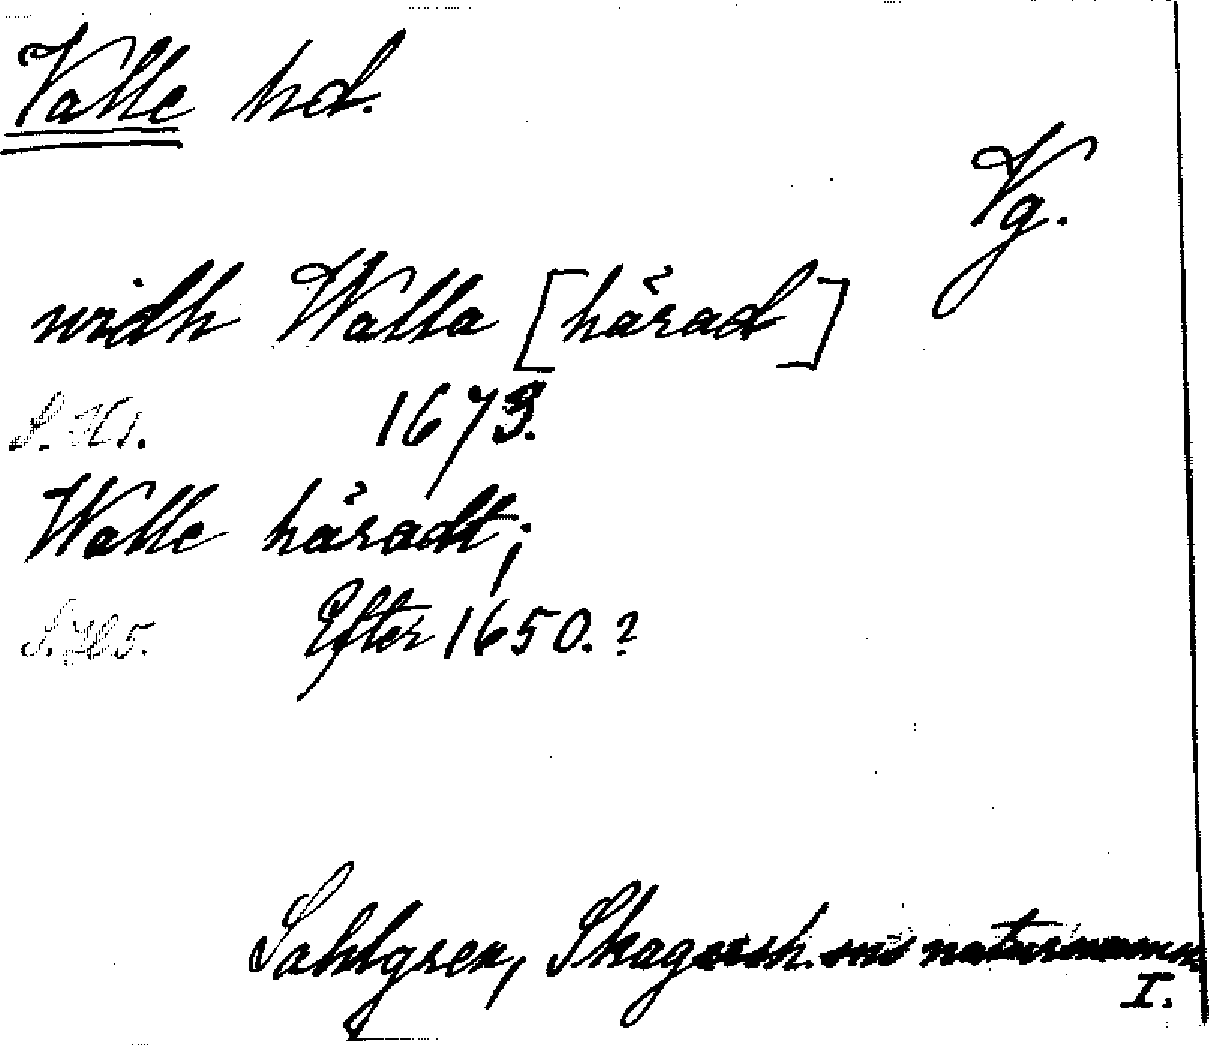 Valle hd.
Vg.
widh Walla [härad]
S. H1. 1673.
Walle häradt;
S. H5. Efter 1650.?
Sahlgren, Skagersh. sns naturnamn
I.